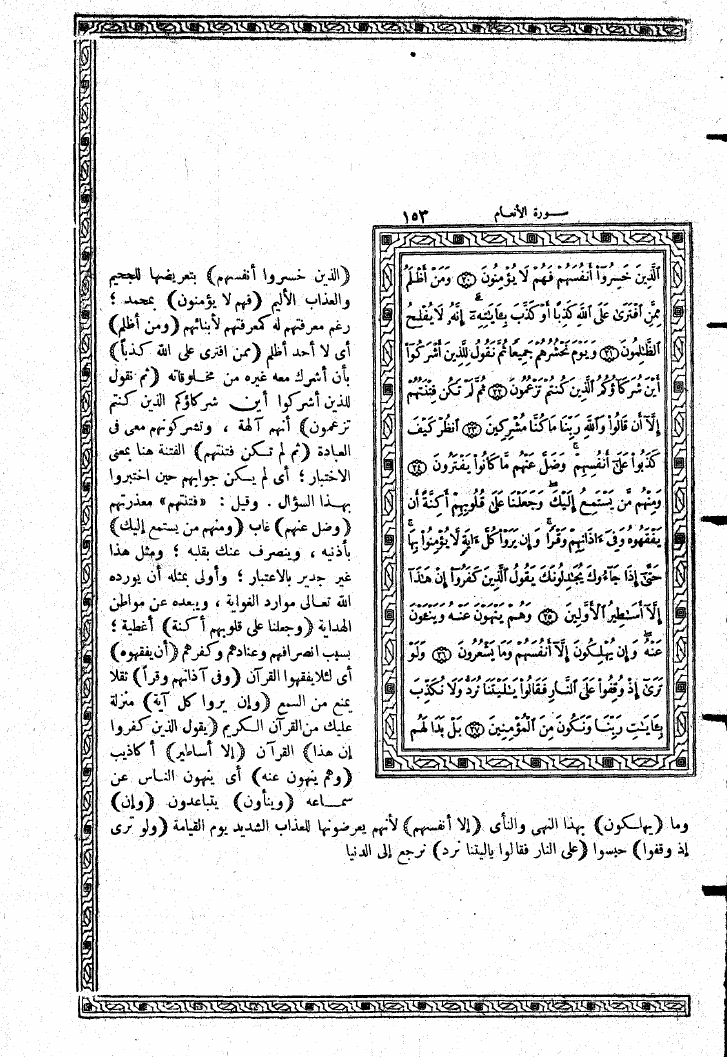 سورة الأنعام ١٥٣
ٱلَّذِينَ خَسِرُوٓا۟ أَنفُسَهُمْ فَهُمْ لَا يُؤْمِنُونَ ۝٢٠ وَمَنْ أَظْلَمُ
مِمَّنِ ٱفْتَرَىٰ عَلَى ٱللَّهِ كَذِبًا أَوْ كَذَّبَ بِـَٔايَـٰتِهِۦٓ ۗ إِنَّهُۥ لَا يُفْلِحُ
ٱلظَّـٰلِمُونَ ۝٢١ وَيَوْمَ نَحْشُرُهُمْ جَمِيعًا ثُمَّ نَقُولُ لِلَّذِينَ أَشْرَكُوٓا۟
أَيْنَ شُرَكَآؤُكُمُ ٱلَّذِينَ كُنتُمْ تَزْعُمُونَ ۝٢٢ ثُمَّ لَمْ تَكُن فِتْنَتُهُمْ
إِلَّآ أَن قَالُوا۟ وَٱللَّهِ رَبِّنَا مَا كُنَّا مُشْرِكِينَ ۝٢٣ ٱنظُرْ كَيْفَ
كَذَبُوا۟ عَلَىٰٓ أَنفُسِهِمْ ۚ وَضَلَّ عَنْهُم مَّا كَانُوا۟ يَفْتَرُونَ ۝٢٤
وَمِنْهُم مَّن يَسْتَمِعُ إِلَيْكَ ۖ وَجَعَلْنَا عَلَىٰ قُلُوبِهِمْ أَكِنَّةً أَن
يَفْقَهُوهُ وَفِىٓ ءَاذَانِهِمْ وَقْرًا ۚ وَإِن يَرَوْا۟ كُلَّ ءَايَةٍ لَّا يُؤْمِنُوا۟ بِهَا ۚ
حَتَّىٰٓ إِذَا جَآءُوكَ يُجَـٰدِلُونَكَ يَقُولُ ٱلَّذِينَ كَفَرُوٓا۟ إِنْ هَـٰذَآ
إِلَّآ أَسَـٰطِيرُ ٱلْأَوَّلِينَ ۝٢٥ وَهُمْ يَنْهَوْنَ عَنْهُ وَيَنْـَٔوْنَ
عَنْهُ ۖ وَإِن يُهْلِكُونَ إِلَّآ أَنفُسَهُمْ وَمَا يَشْعُرُونَ ۝٢٦ وَلَوْ
تَرَىٰٓ إِذْ وُقِفُوا۟ عَلَى ٱلنَّارِ فَقَالُوا۟ يَـٰلَيْتَنَا نُرَدُّ وَلَا نُكَذِّبَ
بِـَٔايَـٰتِ رَبِّنَا وَنَكُونَ مِنَ ٱلْمُؤْمِنِينَ ۝٢٧ بَلْ بَدَا لَهُم
(الذين خسروا أنفسهم) بتعريضها للجحيم
والعذاب الأليم (فهم لا يؤمنون) بمحمد ؛
رغم معرفتهم له كمعرفتهم لأبنائهم (ومن أظلم)
أى لا أحد أظلم (ممن افترى على الله كذباً)
بأن أشرك معه غيره من مخلوقاته (ثم نقول
للذين أشركوا أين شركاؤكم الذين كنتم
تزعمون) أنهم آلهة ، وتشركونهم معى فى
العبادة (ثم لم تكن فتنتهم) الفتنة هنا بمعنى
الاختبار ؛ أى لم يكن جوابهم حين اختبروا
بهذا السؤال . وقيل : «فتنتهم» معذرتهم
(وضل عنهم) غاب (ومنهم من يستمع إليك)
بأذنيه ، وينصرف عنك بقلبه ؛ ومثل هذا
غير جدير بالاعتبار ؛ وأولى بمثله أن يورده
الله تعالى موارد الغواية ، ويبعده عن مواطن
الهداية (وجعلنا على قلوبهم أكنة) أغطية ؛
بسبب انصرافهم وعنادهم وكفرهم (أن يفقهوه)
أى لئلا يفقهوا القرآن (وفى آذانهم وقراً) ثقلا
يمنع من السمع (وإن يروا كل آية) منزلة
عليك من القرآن الكريم (يقول الذين كفروا
إن هذا) القرآن (إلا أساطير) أكاذيب
(وهم ينهون عنه) أى ينهون الناس عن
سماعه (وينأون) يتباعدون (وإن)
وما (يهلكون) بهذا النهى والنأى (إلا أنفسهم) لأنهم يعرضونها للعذاب الشديد يوم القيامة (ولو ترى
إذ وقفوا) حبسوا (على النار فقالوا ياليتنا نرد) نرجع إلى الدنيا